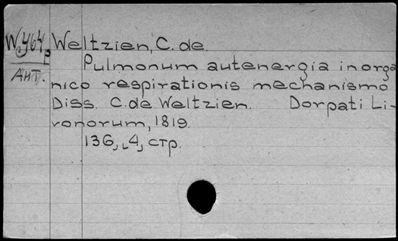 W 464 Weltzien, C. de
Pulmonum autenergia inorga
Ант. nico respirationis mechanismo
Diss. C. de Weltzien. Dorpati Li-
vonorum, 1819.
136, 4, стр.